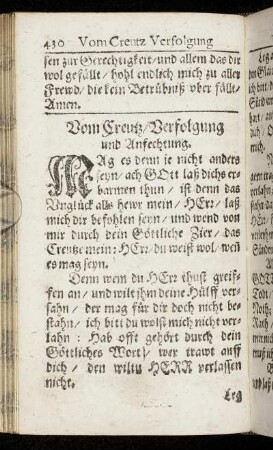 430 Vom Creutz Verfolgung
sen zur Gerechtigkeit/ und allem das dir
wol gefällt/ hohl endlich mich zu aller
Frewd/ die kein Betrübniß vber fällt/
Amen.
Vom Creutz/Verfolgung
und Anfechtung.
MAg es denn je nicht anders
seyn/ ach GOtt laß dichs er-
barmen thun/ ist denn das
Vnglück alls hewr mein/ HErr/ laß
mich dir befohlen seyn/ und wend von
mir durch dein Göttliche Zier/ das
Creutze mein: HErr du weist wol/ weñ
es mag seyn.
Denn wenn du HErr thust greif-
fen an/ und wilt jhm deine Hülff ver-
sahn/ der mag für dir doch nicht be-
stahn/ ich bitt du wolst mich nicht ver-
lahn: Hab offt gehört durch dein
Göttliches Wort/ wer trawt auff
dich/ den wiltu HERR verlassen
nicht.
Leg